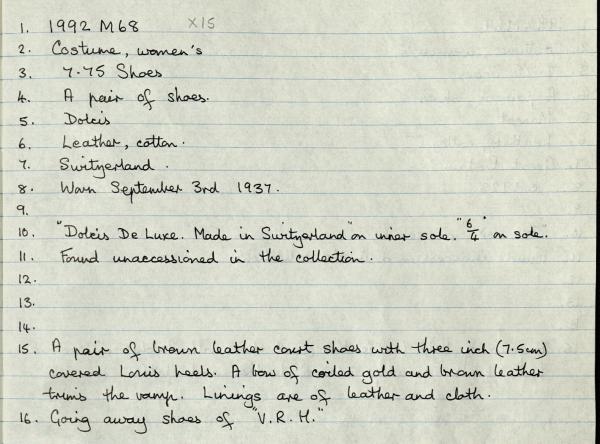 1. 1992 M68 X15
2. Costume, women's
3. 7.75 Shoes
4. A pair of shoes.
5. Dolcis
6. Leather, cotton.
7. Switzerland.
8. Worn September 3rd 1937.
9.
10. "Dolcis De Luxe. Made in Switzerland" on inner sole. "6/4" on sole.
11. Found unaccessioned in the collection.
12.
13.
14.
15. A pair of brown leather court shoes with three inch (7.5cm)
covered Louis heels. A bow of coiled gold and brown leather
trims the vamp. Linings are of leather and cloth.
16. Going away shoes of "V.R.H."